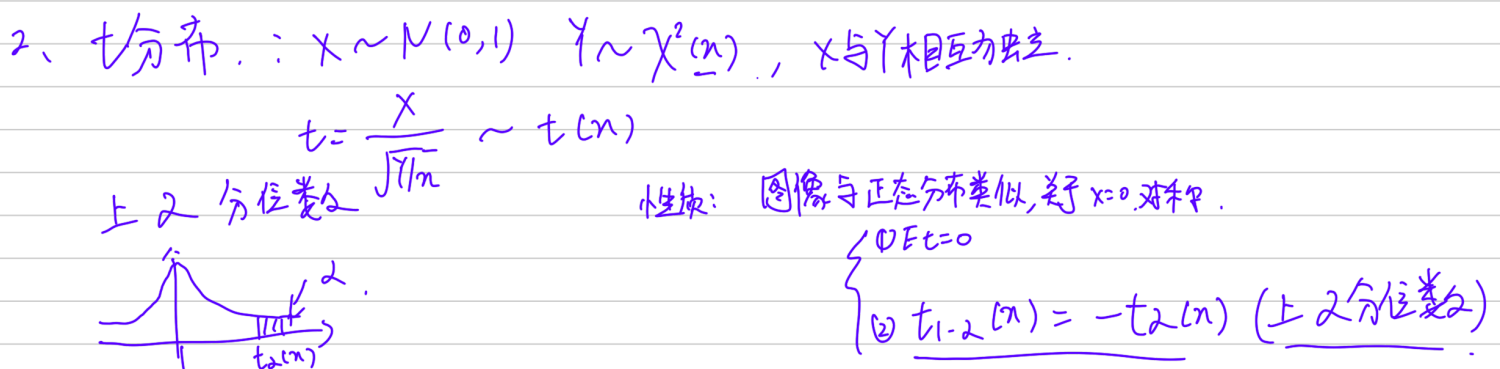 2、t分布.: X~N(0,1) Y~χ²(n), X与Y相互为独立.
t= X/√(Y/n) ~ t(n)
上α分位数 性质: 图像与正态分布类似,关于x=0对称.
①Et=0
α.
②t₁₋α(n)=-tα(n) (上α分位数)
tα(n)